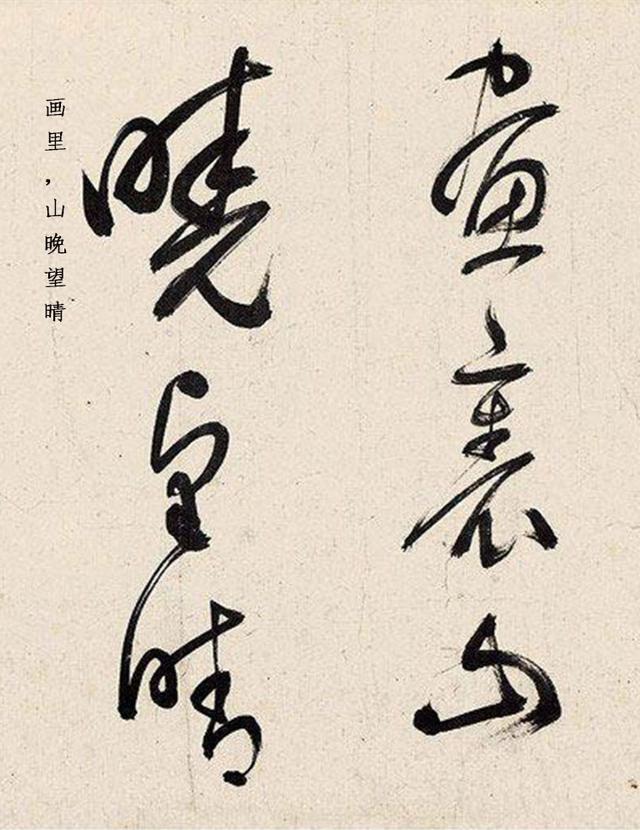 畫裏山
曉望晴
画里，山晚望晴